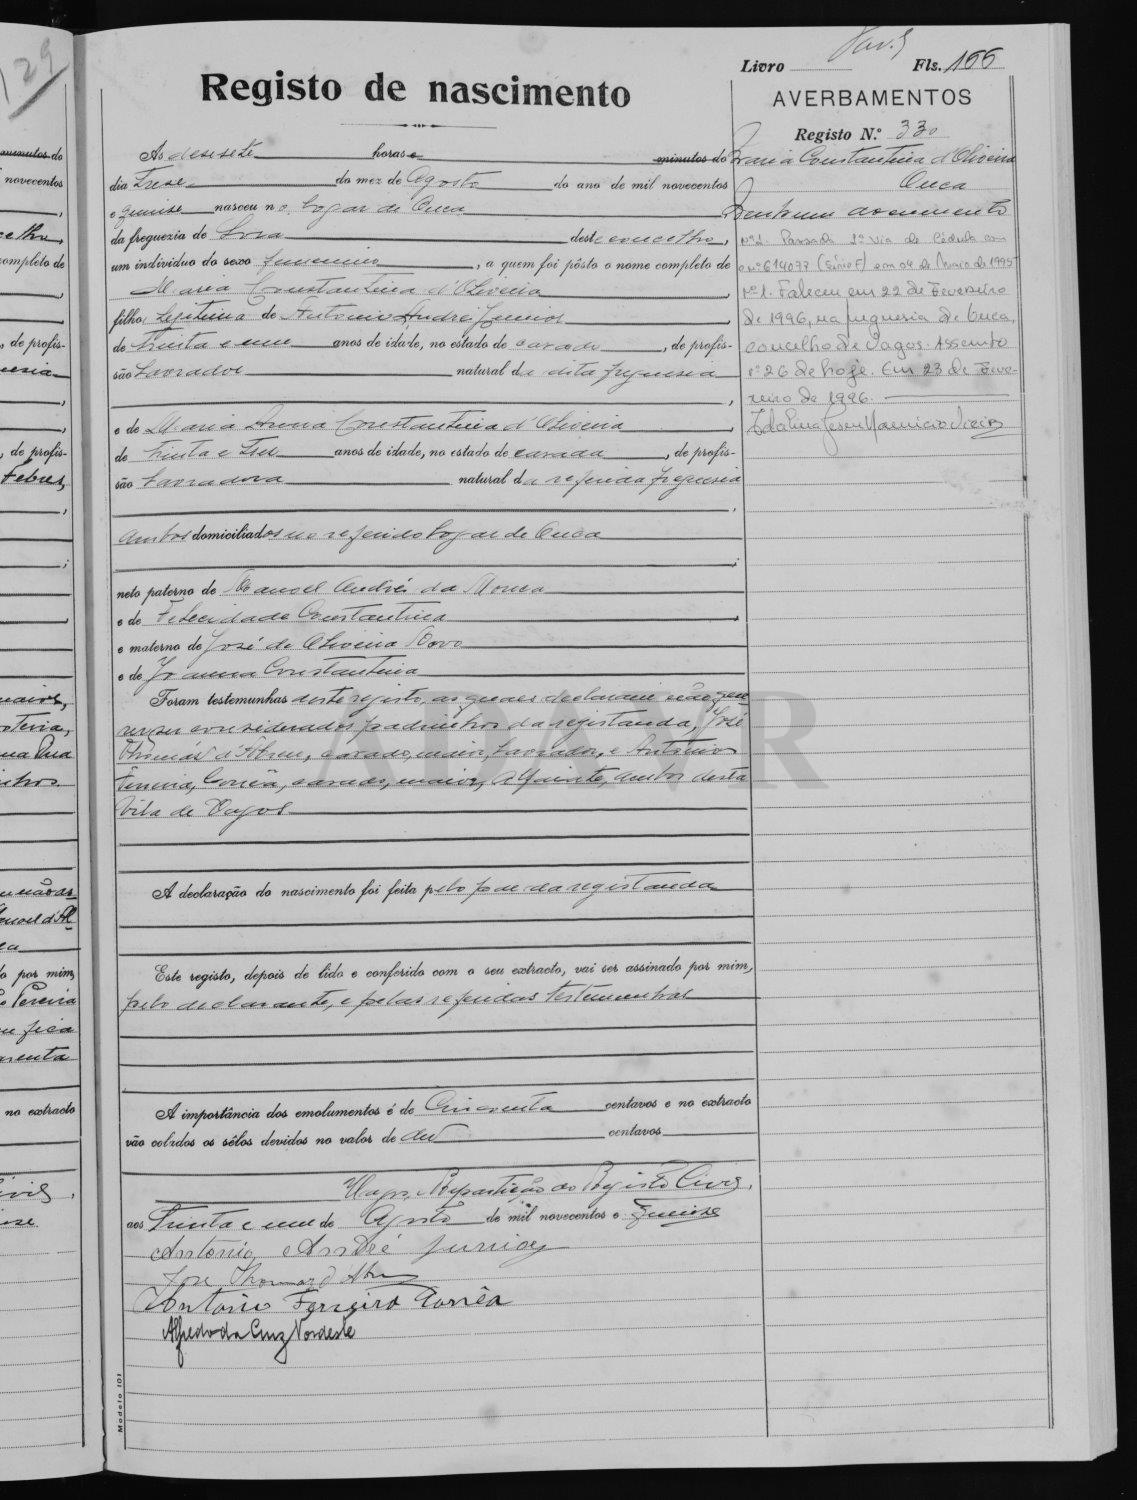 129
Livro Fls. 166
Registo de nascimento
AVERBAMENTOS
Registo N.º 330
Maria Constantina d'Oliveira
Ouca
Nenhum documento
Nº 2. Passada 2ª via de Cédula com
o nº 614077 (Série F) em 04 de Maio de 1995
Nº 1. Faleceu em 22 de Fevereiro
de 1996, na freguesia de Ouca,
concelho de Vagos. Assento
nº 26 de hoje. Em 23 de Feve-
reiro de 1996.
Ás desesete horas e minutos do
dia Trese do mez de Agosto do ano de mil novecentos
e quinse nasceu no Logar de Ouca
da freguezia de Soza deste concelho,
um individuo do sexo femenino, a quem foi pôsto o nome completo de
Maria Constantina d'Oliveira
filha legitima de Antonio André Junior
de trinta e um anos de idade, no estado de casado, de profis-
são Lavrador natural da dita freguesia
,
e de Maria Constantina d'Oliveira
de trinta e anos de idade, no estado de casada, de profis-
são Lavradora natural da referida freguesia
,
ambos domiciliados no referido Logar de Ouca
;
neto paterno de Manoel André da
e de Felecidade Constantina
e materno de José de Oliveira Novo
e de Joanna Constantina
Foram testemunhas deste registo, as quaes declararam não que-
rer ser considerados padrinhos da registanda, José
Thomás d'Abreu, casado, maior, Lavrador, e Antonio
Ferreira Corrêa, casado, maior, ambos desta
Vila de Vagos
A declaração do nascimento foi feita pelo pae da registanda
Este registo, depois de lido e conferido com o seu extracto, vai ser assinado por mim,
pelo declarante, e pelas referidas testemunhas
A importância dos emolumentos é de Cincoenta centavos e no extracto
vão colados os sêlos devidos no valor de dez centavos
Vagos, Repartição do Registo Civil,
aos Trinta e um de Agosto de mil novecentos e quinse
Antonio André Junior
José Thomaz d'Abreu
Antonio Ferreira Corrêa
Alfredo da Cruz Nordeste
Modelo 101